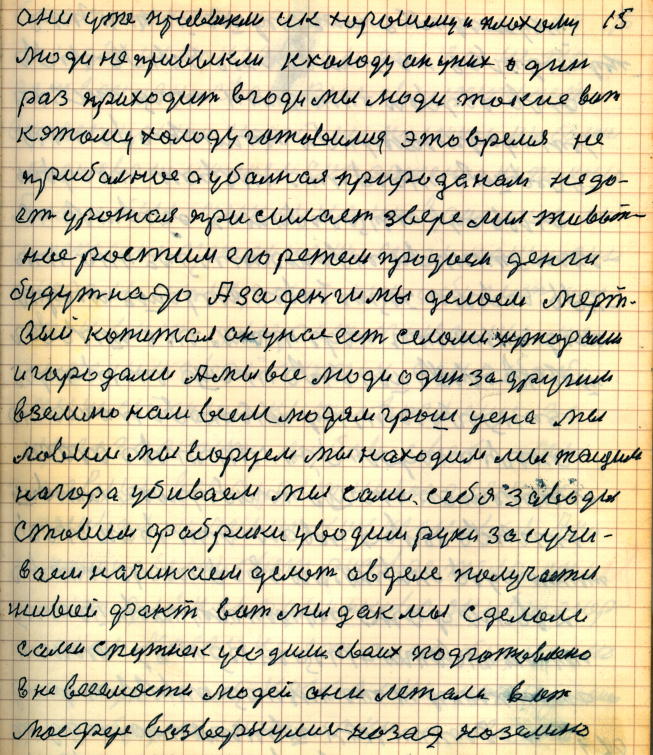 они уже привыкли ик хорошему и плохому 15
люди не привыкли к холоду он у них один
раз приходит в году мы люди такие вот
к этому холоду готовимся это время не
прибалное а убалная природа нам не до-
ет урожая присылает звере мы живот-
ное ростим его режем продоем денги
будут надо А за денги мы делоем мерт-
вый копитал он у нас ест селоми хуторами
и городами А мы все люди один за другим
в землю нам всем людям грош цена мы
ловим мы воруем мы находим мы тащим
нагора убиваем мы сами себя заводы
ставим фабрики уводим руки засучи-
ваем начинаем делат а в деле получаети
живой факт вот мы дак мы сделоли
сами спутник усодили своих подготовлено
в невесемости людей они летали в от
мосфере возвернулис назад на землю